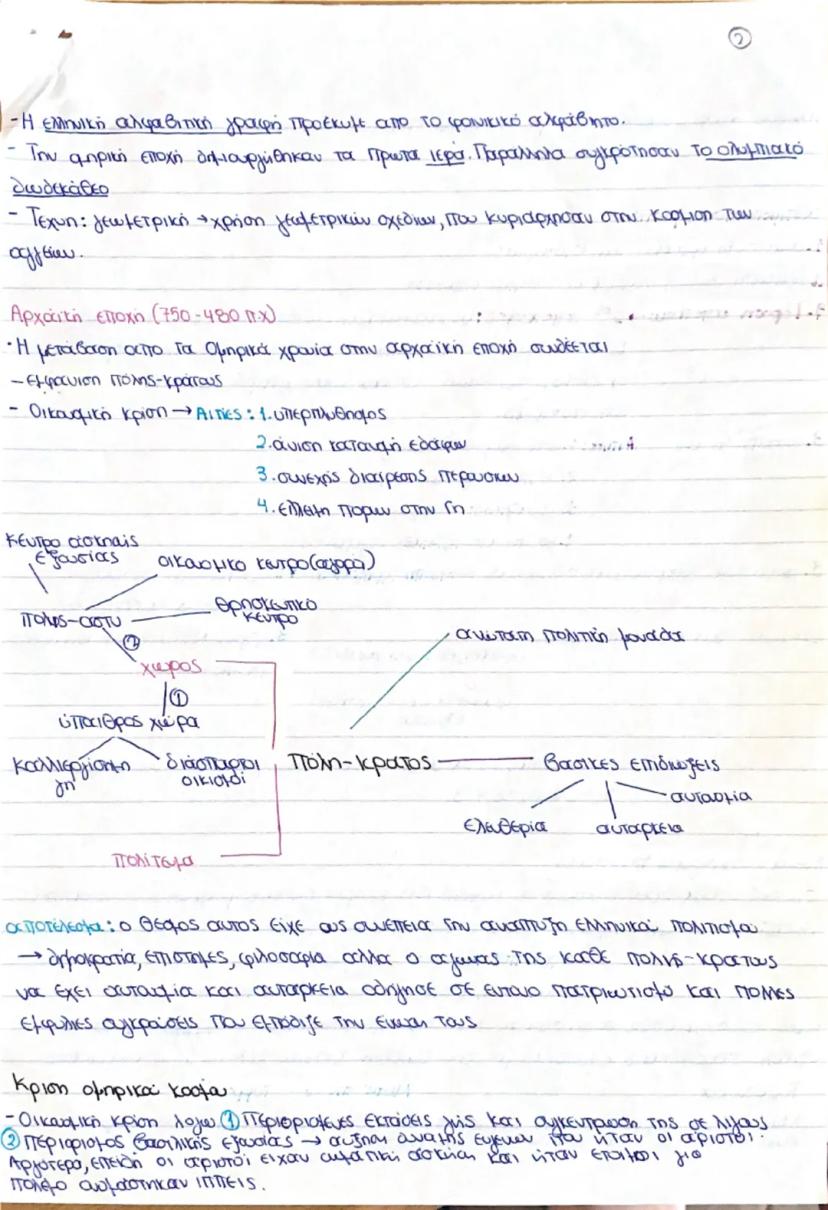 2
- Η ελληνική αλφαβητική γραφή προέκυψε απο το φοινικικό αλφάβητο.
- Την ομηρική εποχή δημιουργήθηκαν τα πρώτα ιερά. Παράλληλα συγκρότησαν το ολυμπιακό
δωδεκάθεο
- Τέχνη: γεωμετρική → χρήση γεωμετρικών σχεδίων, που κυριάρχησαν στην κόσμιση των
αγγείων.
Αρχαϊκή εποχή (750-480 π.χ)
· Η μετάβαση απο τα Ομηρικά χρονια στην αρχαϊκή εποχή συνδέεται
- εμφάνιση πόλης-κράτους
- Οικονομική κρίση → Αιτίες: 1. υπερπληθησμος
2. άνιση κατανομή εδαφων
3. συνεχής διαίρεσης περιουσιων
4. έλλειψη πορων στην γη
κέντρο άσκησης
εξουσίας
οικονομικο κεντρο (αγορά)
πόλης-αστυ
θρησκευτικό
κέντρο
②
ανώτατη πολιτική μονάδα
χώρος
①
ύπαιθρος χώρα
καλλιεργίσημη
γη
διάσπαρτοι
οικισμοί
Πόλη-κρατος
βασικες επιδιωξεις
αυτονομία
ελευθερία
αυταρκεια
πολίτεμα
αποτέλεσμα: ο θεσμος αυτος είχε ως συνέπεια την αναπτυξη ελληνικού πολιτισμου
→ δημοκρατία, επιστημες, φιλοσοφία αλλα ο αγωνας της κάθε πολης-κρατους
να έχει αυτονομία και αυταρκεια οδήγησε σε εντονο πατριωτισμό και πολλες
εμφυλιες συγκρούσεις που εμπόδιζε την ενωση τους
Κριση ομηρικού κοσμου
- Οικονομική κρίση λογω ① Περιορισμενες εκτάσεις γής και συγκεντρωση της σε λιγους
② Περιορισμος βασιλικής εξουσίας → αυξηση δυναμης ευγενων που ήταν οι αριστοι.
Αργότερα, επειδή οι αριστοί ειχαν σωματική ασκηση και ήταν ετοιμοι για
πόλεμο ονομάστηκαν ιππεις.